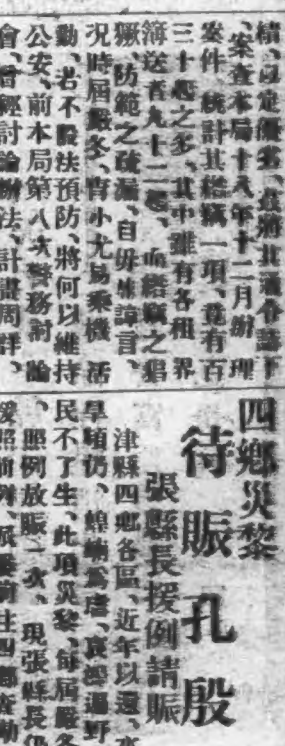 績、以定優劣、茲將其通令誌下
、案查本局十八年十二月辦理
案件、統計其搭竊一項、竟有百
三十起之多、其中雖有各租界
簿送者九十二起、而搭竊之猖
獗、防範之疏漏、自毋庸諱言、
況時屆嚴冬、宵小尤易乘機活
動、若不設法預防、將何以維持
公安、前本局第八次警務討論
會、曾經討論辦法、計畫周詳、
四鄉災黎
待賑孔殷
張縣長援例請賑
津縣四鄉各區、近年以還、水
旱頻仍、蝗蝻為虐、哀鴻遍野
民不了生、此項災黎、每屆嚴冬
、照例放賑一次、現張縣長仍
援照前例、前往四鄉查勘